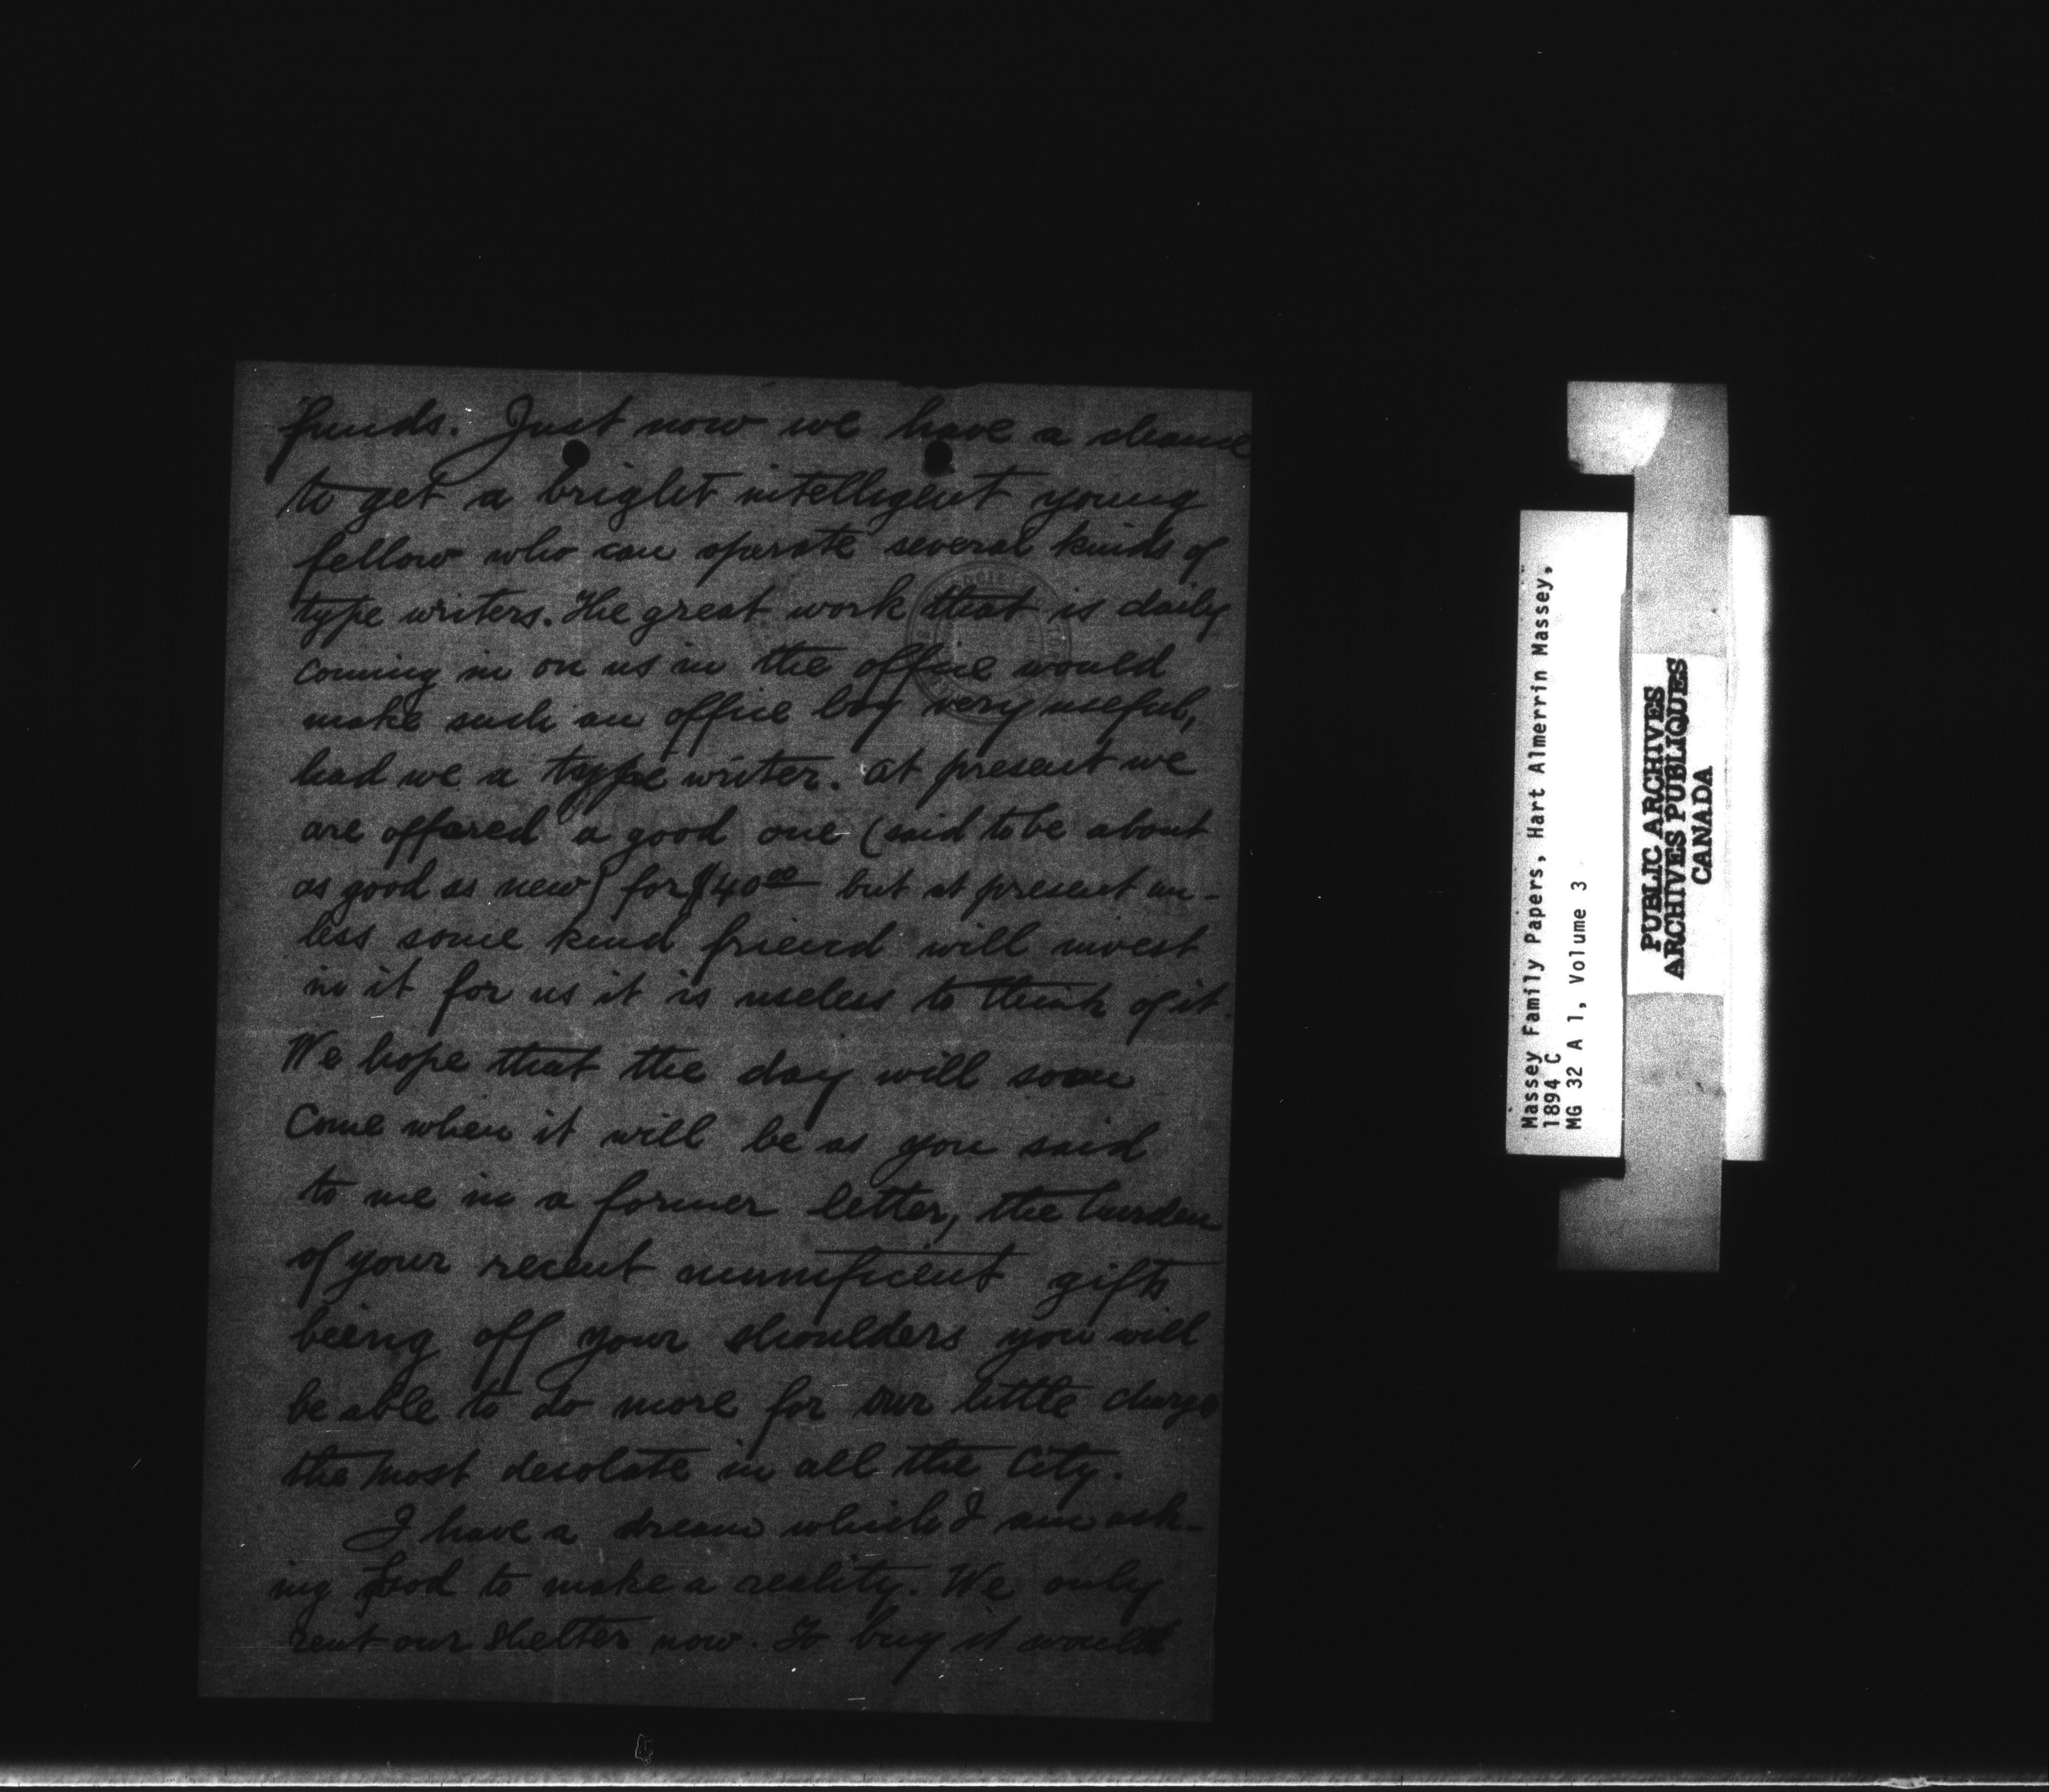 funds. Just now we have a chance
to get a bright intelligent young
fellow who can operate several kinds of
type writers. The great work that is daily
coming in on us in the office would
make such an office boy very useful,
had we a type writer. At present we
are offered a good one (said to be about
as good as new) for $40.00 but at present un-
less some kind friend will invest
in it for us it is useless to think of it.
We hope that the day will soon
come when it will be as you said
to me in a former letter, the burden
of your recent munificent gifts
being off your shoulders you will
be able to do more for our little charge
the most desolate in all the City.
I have a dream which I am ask-
ing God to make a reality. We only
rent our Shelter now. To buy it would
SOCIETY
Massey Family Papers, Hart Almerrin Massey,
1894 C
MG 32 A 1, Volume 3
PUBLIC ARCHIVES
ARCHIVES PUBLIQUES
CANADA